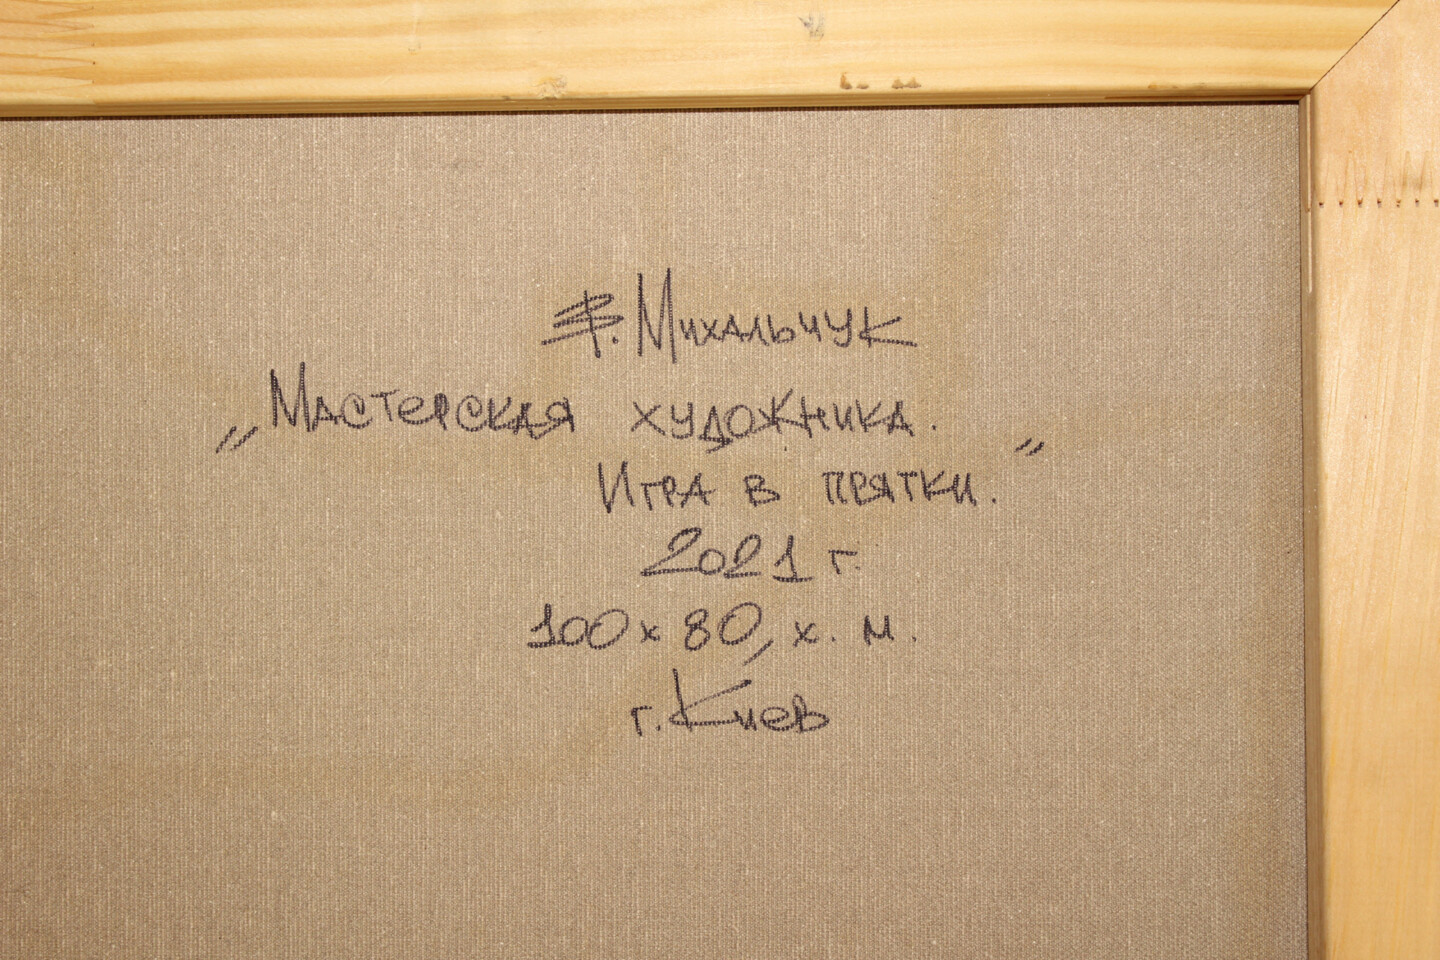 В. Михальчук
„Мастерская художника.
Игра в прятки.”
2021 г.
100х80, х. м.
г. Киев